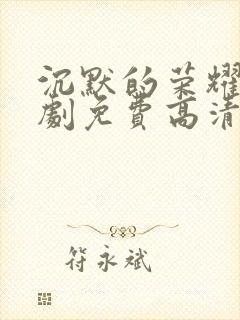 沉默的荣耀
劇免費高清
符永斌